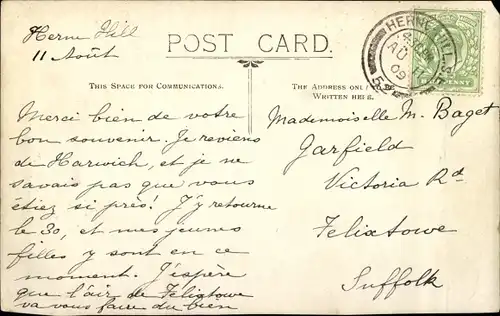 Herne Hill
11 Août
POST CARD.
HERNE HILL S.E.
AU
09
THIS SPACE FOR COMMUNICATIONS.
THE ADDRESS ONLY
WRITTEN HERE.
Merci bien de votre
bon souvenir. Je reviens
de Harwich, et je ne
savais pas que vous
étiez si près! J'y retourne
le 30, et mes jeunes
filles y sont en ce
moment. J'espère
que l'air de Felixtowe
va vous faire du bien
Mademoiselle M. Baget
Garfield
Victoria Rd
Felixtowe
Suffolk